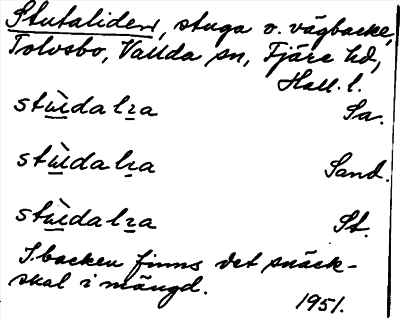 Stutaliden, stuga o. vägbacke,
Tolvsbo, Vallda sn, Fjäre hd,
Hall. l.
stùdalɩa Sa.
stùdalɩa Sand.
stùdalɩa St.
I backen finns det snäck-
skal i mängd.
1951.